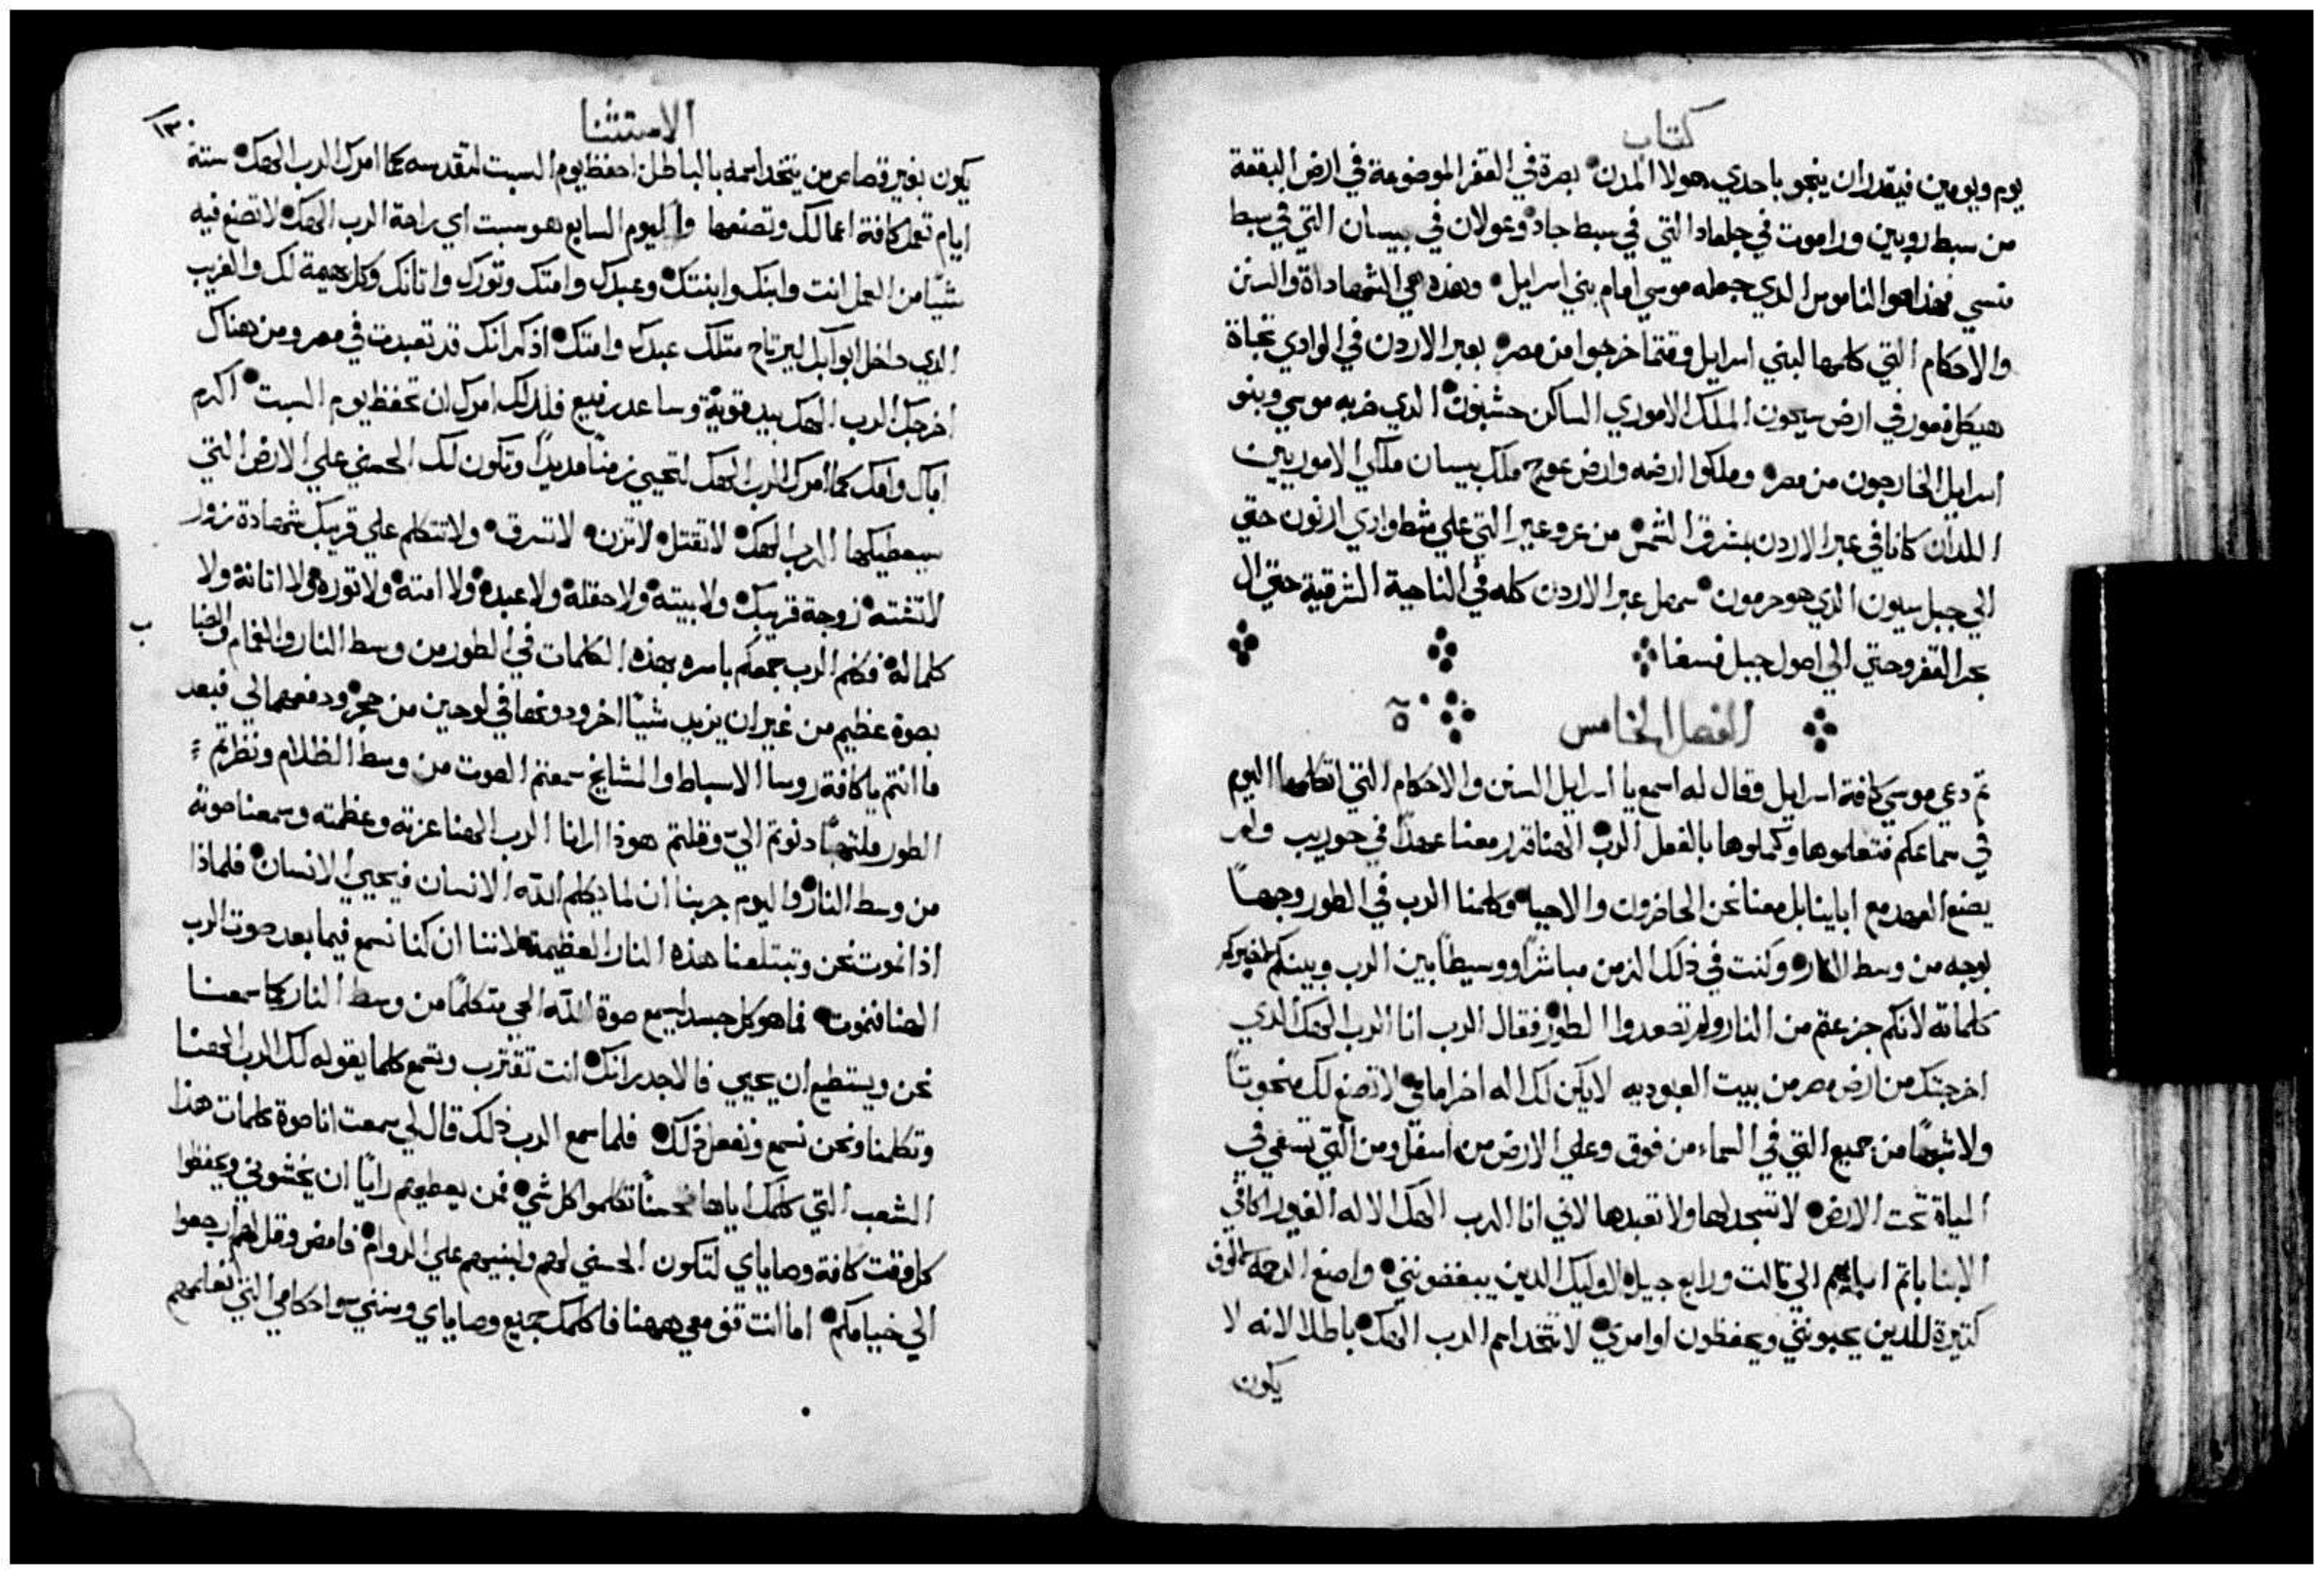 كتاب
يوم ويومين فيقدر ان ينجو باحدي هولا المدن بصرة في القفر الموضوعة في ارض البقعة
من سبط روبين وراموت في جلعاد التي في سبط جاد وعولان في بيسان التي في سبط
منسي فهذا هو الناموس الدي جعله موسي امام بني اسرايل وهذه هي الشهاداة والسنن
والاحكام التي كلمها لبني اسرايل وقتما خرجوا من مصر بعبر الاردن في الوادي تجاة
هيكل فعور في ارض سيحون الملك الاموري الساكن حشبون الدي ضربه موسي وبنو
اسرايل الخارجون من مصر وملكوا ارضه وارض عوج ملك بيسان ملكي الاموريين
اللدان كانا في عبر الاردن بشرق الشمس من عروعير التي علي شط وادي ارنون حتي
الي جبل سيون الدي هو حرمون سهل عبر الاردن كله في الناحية الشرقية حتي ال
بحر القفر وحتي الي اصول جبل فسغا
الفصل الخامس ٥
تم دعي موسي كافة اسرايل وقال له اسمع يا اسرايل السنن والاحكام التي اتكلمها اليوم
في سماعكم فتعلموها وكملوها بالفعل الرب الهنا قرر معنا عهدًا في حوريب ولم
يصنع العهد مع اباينا بل معنا نحن الحاضرون والاحيا وكلمنا الرب في الطور وجهاً
لوجه من وسط النار وكنت في ذلك الزمن مباشرًا ووسيطاً بين الرب وبينكم لخبركم
كلماته لانكم جزعتم من النار ولم تصعدوا الطور فقال الرب انا الرب الهك الدي
اخرجتك من ارض مصر من بيت العبوديه لا يكن لك اله اخر امامي لا تصنع لك منحوتاً
ولا شبهًا من جميع التي في السماء من فوق وعلي الارض من اسفل ومن التي تسعي في
المياة تحت الارض لا تسجد لها ولا تعبدها لاني انا الرب الهك الاله الغيور اكافي
الابنا باتم ابايهم الي تالت ورابع جيل لاوليك الدين يبغضونني واصنع الرحمة الوف
كتيرة للدين يحبونني ويحفظون اوامري لا تتخد اسم الرب الهك باطلا لانه لا
يكون
الاستثنا
١٣٠
يكون بغير قصاص من يتخد اسمه بالباطل احفظ يوم السبت لتقدسه كما امرك الرب الهك ستة
ايام تعمل كافة اعمالك وتصنعها واليوم السابع هو سبت اي راحة الرب الهك لا تصنع فيه
شيًا من العمل انت وابنك وابنتك وعبدك وامتك وتورك واتانك وكل بهيمة لك والغريب
الدي داخل ابوابك ليرتاح متلك عبدك وامتك اذكر انك قد تعبدت في مصر ومن هناك
اخرجك الرب الهك بيد قوية وساعد رفيع فلدلك امرك ان تحفظ يوم السبت اكرم
اباك وامك كما امرك الرب الهك لتحيي زمناً مديدًا وتكون لك الحسني علي الارض التي
سيعطيكها الرب الهك لا تقتل لا تزن لا تسرق ولا تتكلم علي قريبك شهادة زور
لا تشته زوجة قريبك ولا بيته ولا حقله ولا عبده ولا امته ولا توره ولا اتانه ولا
كلما له فكلم الرب جمعكم باسره بهذه الكلمات في الطور من وسط النار والغمام والضبا
ب
بصوة عظيم من غير ان يزيد شياً اخر ودونها في لوحين من حجر ودفعهما الي فبعد
ما انتم يا كافة روسا الاسباط والمشايخ سمعتم الصوت من وسط الظلام ونظرتم
الطور ملتهباً دنوتم اليّ وقلتم هوذا ارانا الرب الهنا عزته وعظمته وسمعنا صوته
من وسط النار واليوم جربنا ان لما يكلم الله الانسان فيحيي الانسان فلماذا
اذا نموت نحن وتبتلعنا هذه النار العظيمة لاننا ان كنا نسمع فيما بعد صوت الرب
الهنا فنموت فما هو كل جسد ليسمع صوة الله الحي متكلمًا من وسط النار كما سمعنا
نحن ويستطيع ان يحيي فالاجدر انك انت تقترب وتسمع كلما يقوله لك الرب الهنا
وتكلمنا ونحن نسمع ونفعل ذلك فلما سمع الرب ذلك قال لي سمعت انا صوة كلمات هذا
الشعب التي كلمك اياها فحسناً تكلموا كل شي فمن يعطيهم راياً ان يخشوني ويحفظوا
كل وقت كافة وصاياي لتكون الحسني لهم ولبنيهم علي الدوام فامض وقل لهم ارجعوا
الي خيامكم اما انت قف معي ههنا فاكلمك جميع وصاياي وسنني واحكامي التي تعلمهم